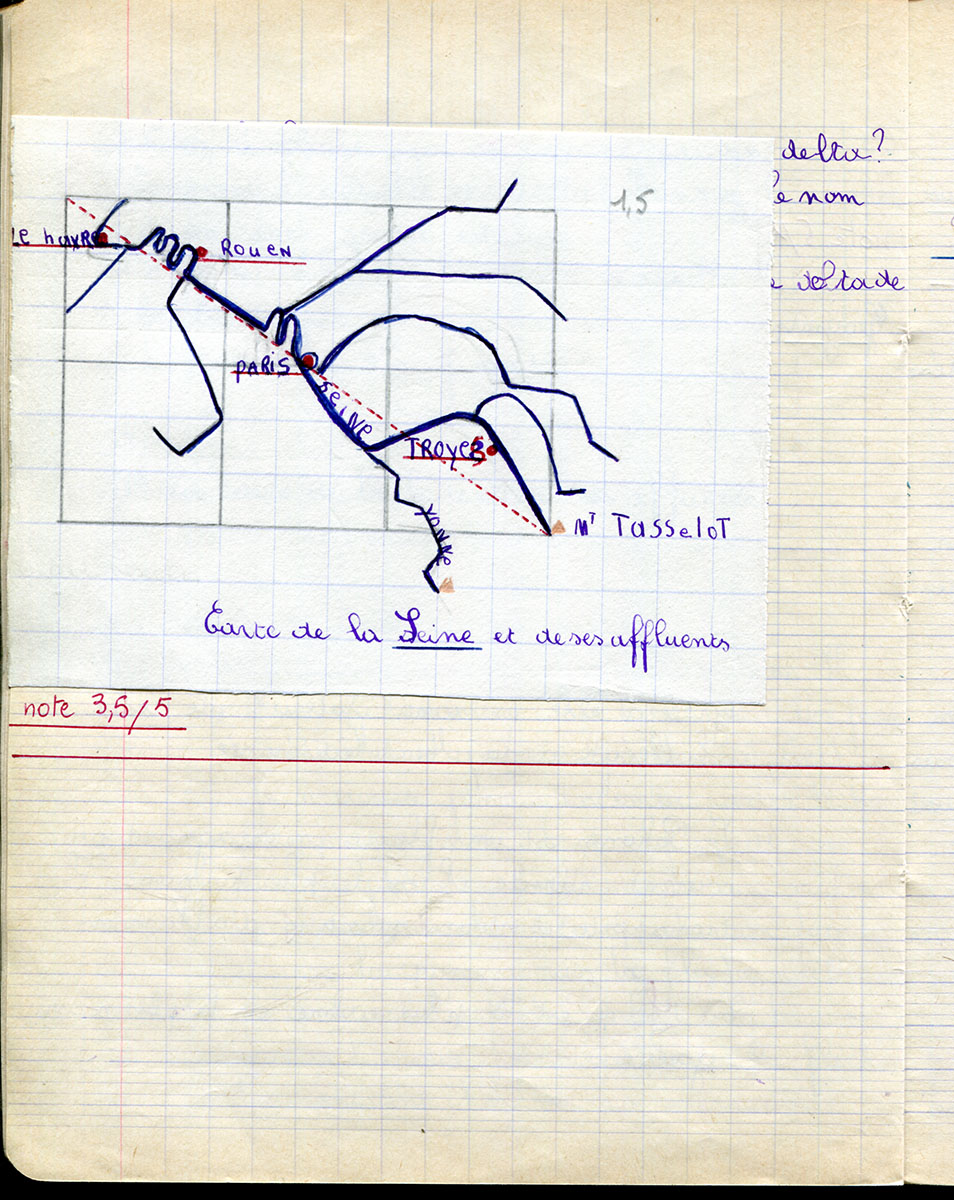 delta?
1,5
le nom
Le havre
Rouen
delta de
PARIS
SEINE
TROYES
Mᵗ Tasselot
YONNE
Carte de la Seine et de ses affluents
note 3,5/5